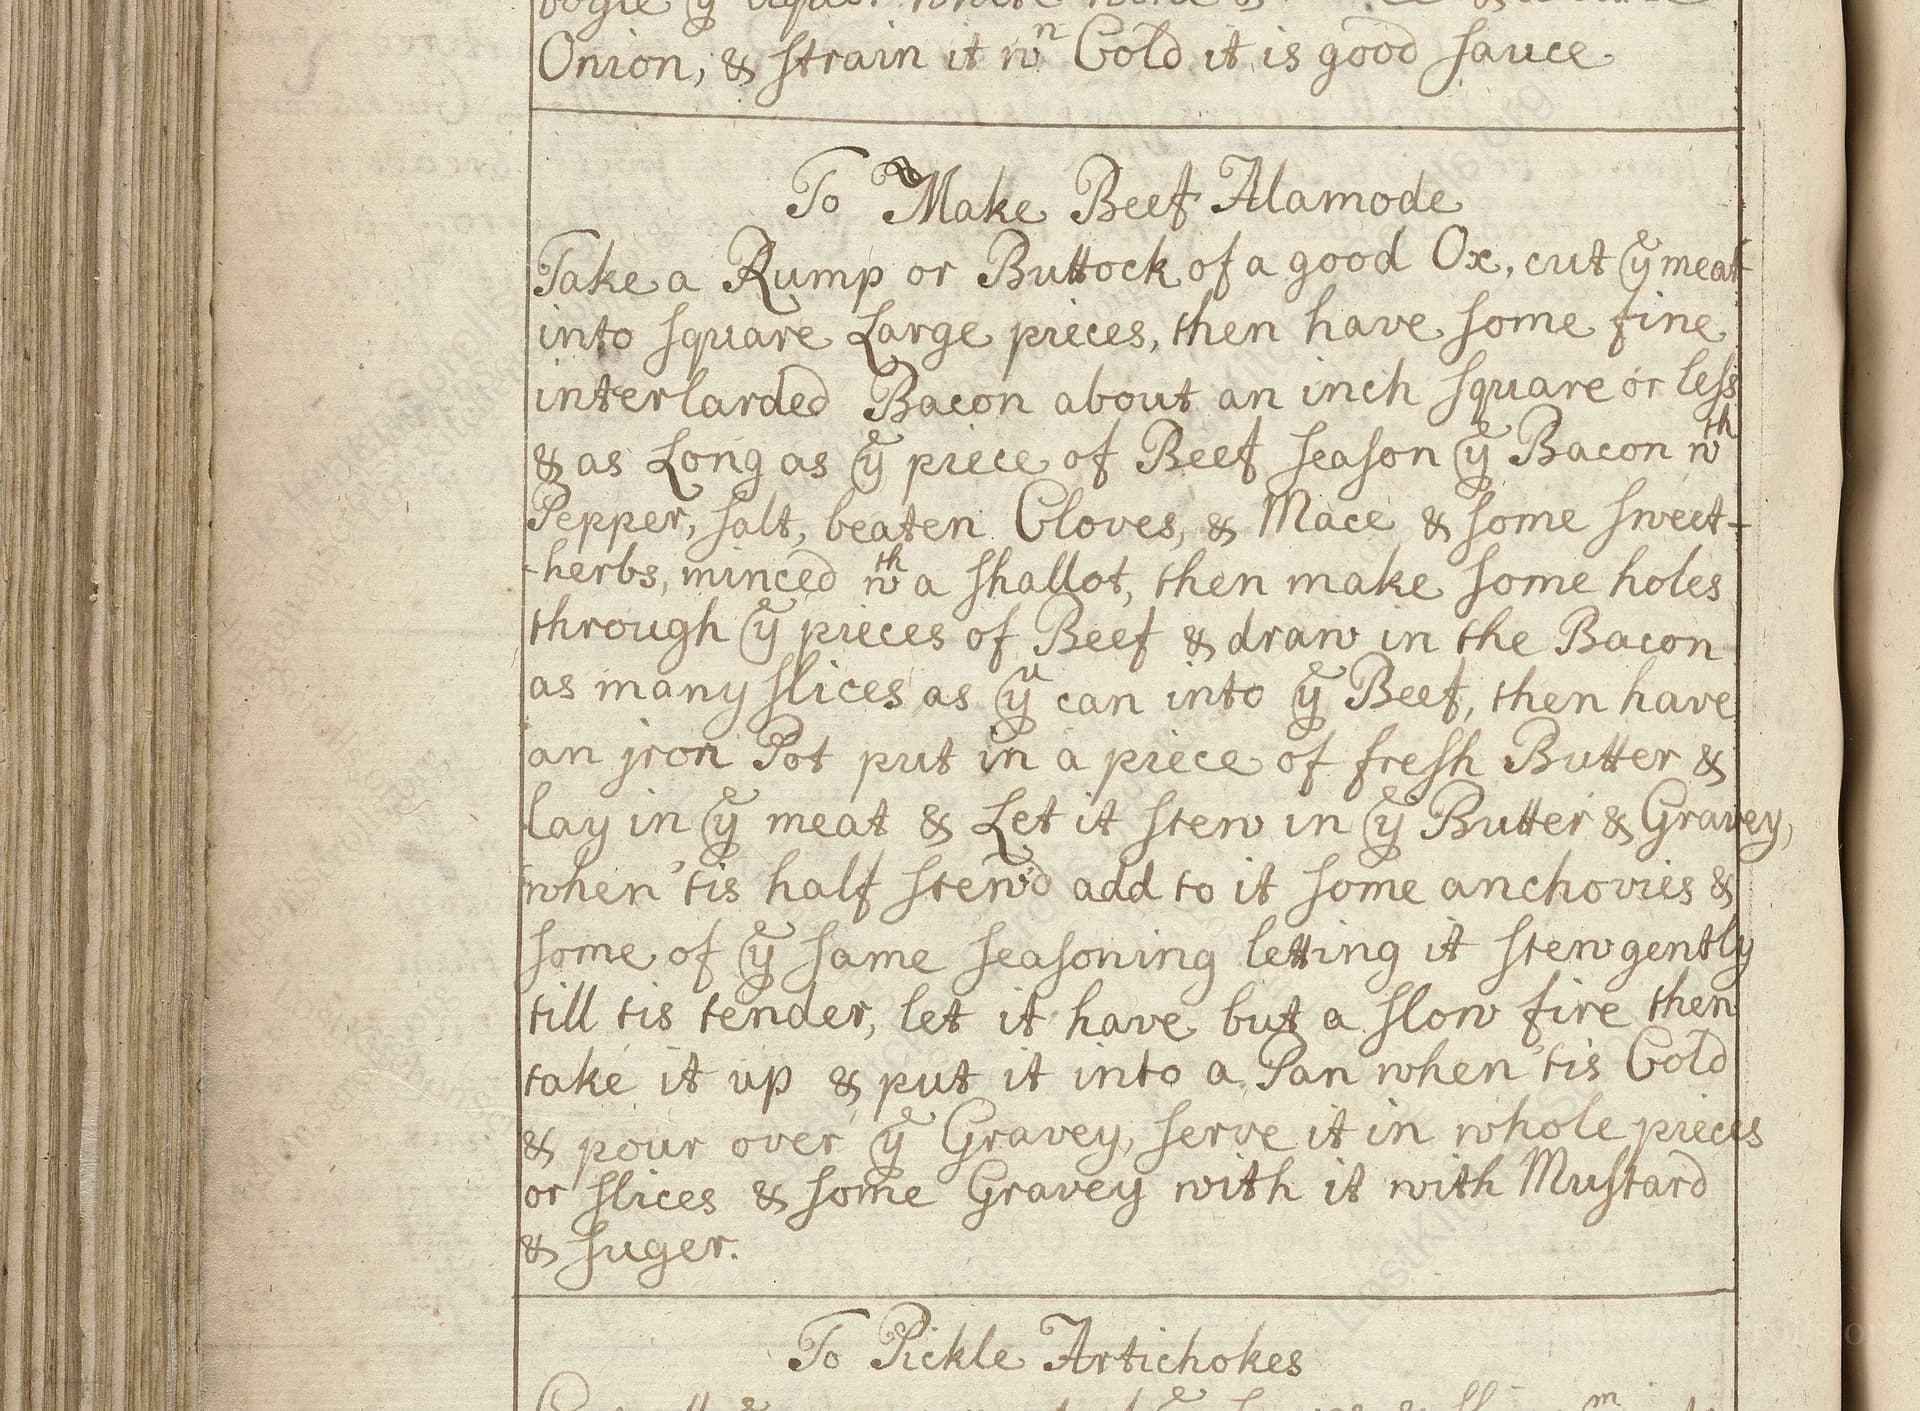 Onion, & strain it wn Cold it is good sauce
To Make Beef Alamode
Take a Rump or Buttock of a good Ox, cut ye meat
into square Large pieces, then have some fine
interlarded Bacon about an inch square or less
& as Long as ye piece of Beef season ye Bacon wth
Pepper, salt, beaten Cloves, & Mace & some sweet-
-herbs, minced wth a shallot, then make some holes
through ye pieces of Beef & draw in the Bacon
as many slices as yu can into ye Beef, then have
an jron Pot put in a piece of fresh Butter &
lay in ye meat & Let it stew in ye Butter & Gravey,
when 'tis half stew'd add to it some anchovies &
some of ye same seasoning letting it stew gently
till tis tender, let it have but a slow fire then
take it up & put it into a Pan when 'tis Cold
& pour over ye Gravey, serve it in whole pieces
or slices & some Gravey with it with Mustard
& suger.
To Pickle Artichokes